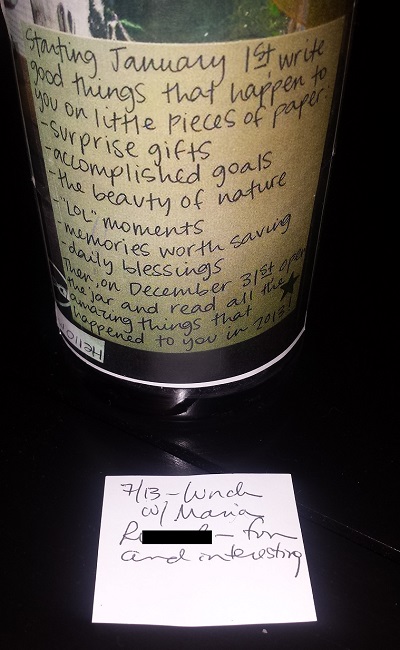 Starting January 1st, write
good things that happen to
you on little pieces of paper:
-surprise gifts
-accomplished goals
-the beauty of nature
-"LOL" moments
-memories worth saving
-daily blessings
Then, on December 31st open
the jar and read all the
amazing things that
happened to you in 2013!
Hello
7/13 - Lunch
w/ Maria
R - fun
and interesting